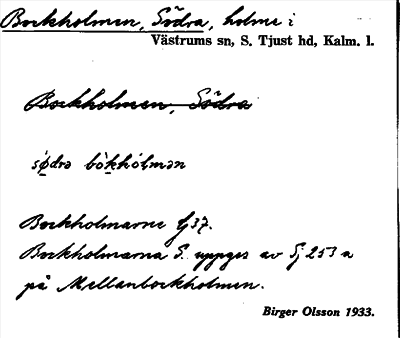 Bockholmen, Södra, holme i
Västrums sn, S. Tjust hd, Kalm. l.
Bockholmen, Södra
södrə bòkhólmən
Bockholmarne Gj 37.
Bockholmarna S. uppges av Sj 253 a
på Mellanbockholmen.
Birger Olsson 1933.